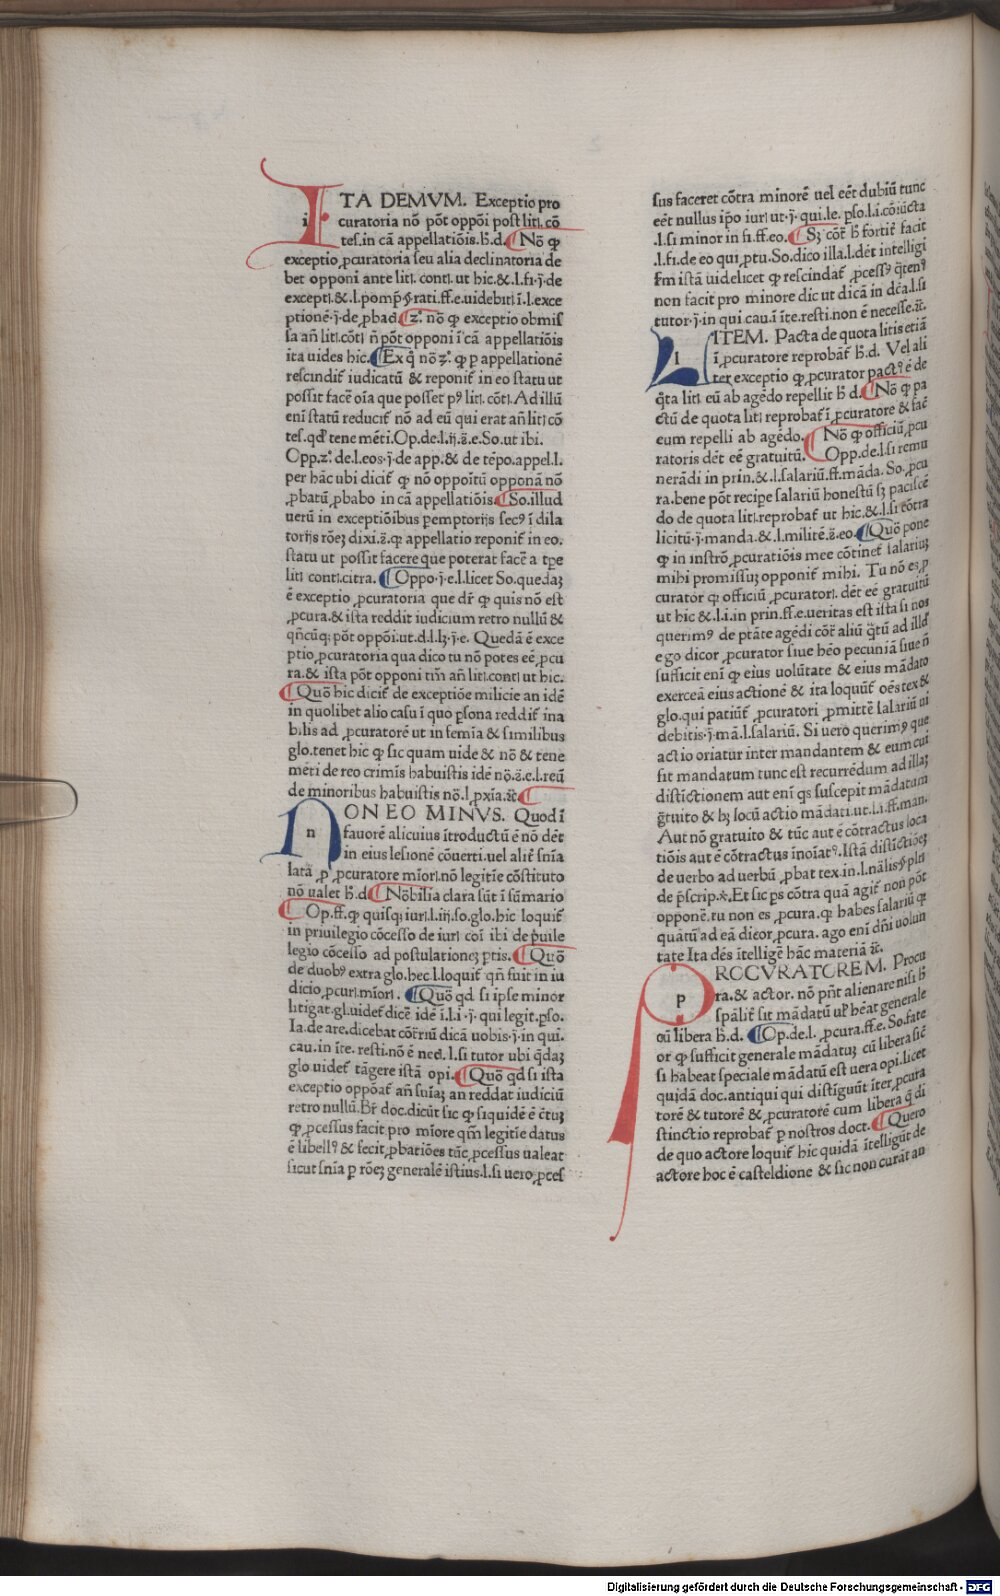 ITA DEMVM. Exceptio pro
curatoria nō pōt oppōi post liti. cō
tes. in cā appellatiōis. h̄. d. ¶ Nō ꝙ
exceptio ꝓcuratoria seu alia declinatoria de
bet opponi ante liti. conti. ut hic. &. l. fi. j. de
ptione. j. de ꝓbad. ¶ z°. nō ꝙ exceptio obmis
sa añ liti. cōti ñ pōt opponi ī cā appellatiōis
ita uides hic. ¶ Ex q̄ nō z°. ꝙ ꝑ appellationē
rescindit̃ iudicatū & reponit̃ in eo statu ut
possit facē oīa que posset pꝰ liti. cōti. Ad illū
enī statū reducit̃ nō ad eū qui erat añ liti cō
tes. qd̄ tene mēti. Op. de. l. ij. ā. e. So. ut ibi.
Opp. z°. de. l. eos. j. de app. & de tēpo. appel. l.
per hāc ubi dicit̃ ꝙ nō oppoitū opponā nō
ꝓbatū ꝓbabo in cā appellatiōis ¶ So. illud
uerū in exceptiōibus ꝑemptorijs secꝰ ī dila
torijs rōeꝫ dixi. ā. ꝙ appellatio reponit̃ in eo.
statu ut possit facere que poterat facē a tꝑe
liti conti. citra. ¶ Oppo. j. e. l. licet So. quedaꝫ
ē exceptio ꝓcuratoria que dr̄ ꝙ quis nō est
ꝓcura. & ista reddit iudicium retro nullū &
qñcūqꝫ pōt oppōi. ut. d. l. lꝫ. j. e. Quedā ē exce
ptio ꝓcuratoria qua dico tu nō potes eē ꝓcu
ra. & ista pōt opponi tm̄ añ liti. conti ut hic.
¶ Quō hic dicit̃ de exceptiōe milicie an idē
in quolibet alio casu ī quo ꝑsona reddit̃ ina
bilis ad ꝓcuratorē ut in femīa & similibus
glo. tenet hic ꝙ sic quam uide & nō & tene
mēti de reo crimīs habuistis idē nō. ā. e. l. reū
de minoribus habuistis nō. l. ꝓxīa. āč ¶
NON EO MINVS. Quod ī
fauorē alicuius ītroductū ē nō dēt
in eius lesionē cōuerti. uel alit̃ sn̄ia
lata ꝑ ꝓcuratore mīori. nō legitīe cōstituto
nō ualet h̄. d. ¶ Nōbilia clara sūt ī sūmario
¶ Op. ff. ꝙ quisqꝫ iuri. l. iij. so. glo. hic loquit̃
in priuilegio cōcesso de iuri coī ibi de p̄uile
legio cōcesso ad postulationeꝫ ꝑtis. ¶ Quō
de duobꝰ extra glo. hec. l. loquit̃ qñ fuit in iu
dicio ꝓcuri. mīori. ¶ Quō qd si ipse minor
litigat. gl. uidet̃ dicē idē ī. l. i. j. qui legit. ꝑso.
Ia. de are. dicebat cōt̄riū dicā uobis. j. in qui.
cau. in īte. resti. nō ē nec̄. l. si tutor ubi q̄daꝫ
glo uidet̃ tāgere istā opi. ¶ Quō qd si ista
exceptio oppōat̃ añ sn̄iaꝫ an reddat iudiciū
retro nullū. Br̄ doc. dicūt sic ꝙ siquidē ē c̄tuꝫ
ꝙ ꝓcessus facit pro mīore qm̄ legitīe datus
ē libellꝰ & fecit ꝓbatiōes tūc ꝓcessus ualeat
sicut sn̄ia ꝑ rōeꝫ generalē istius. l. si uero ꝓces
sus faceret cōtra minorē uel eēt dubiū tunc
eēt nullus ip̄o iuri ut. j. qui. le. ꝑso. l. i. cōiūcta
.l. si minor in fi. ff. eo. ¶ Sꝫ cōt̃ h̄ fortit̃ facit
.l. fi. de eo qui ꝓ tu. So. dico illa. l. dēt intelligi
non facit pro minore dic ut dicā in dc̄a. l. si
tutor. j. in qui cau. ī īte. resti. non ē necesse. āč.
LITEM. Pacta de quota litis etiā
ī ꝓcuratore reprobāt̃ h̄. d. Vel ali
ter exceptio ꝙ ꝓcurator pactꝰ ē de
q̄ta liti eū ab agēdo repellit h̄ d. ¶ Nō ꝙ pa
ctū de quota liti reprobat̃ ī ꝓcuratore & facē
eum repelli ab agēdo. ¶ Nō ꝙ officiū ꝓcu
ratoris dēt eē gratuitū. ¶ Opp. de. l. si remu
nerādi in prin. &. l. salariū. ff. māda. So. ꝓcu
ra. bene pōt recipe salariū honestū sꝫ paciscē
do de quota liti. reprobat̃ ut hic. &. l. si cōtra
licitū. j. manda. &. l. militē. ā. eo. ¶ Quō pone
ꝙ in instrō ꝓcuratiōis mee cōtinet̃ salariuꝫ
mihi promissuꝫ opponit̃ mihi. Tu nō es ꝓ
curator qꝫ officiū ꝓcuratori. dēt eē gratuitū
ut hic &. l. i. in prin. ff. e. ueritas est ista si nos
querimꝰ de ptāte agēdi cōt̃ aliū q̄tū ad illd̄
ego dicor ꝓcurator siue hēo pecuniā siue ñ
sufficit enī ꝙ eius uolūtate & eius mādato
exerceā eius actionē & ita loquūt̃ oēs tex &
glo. qui patiūt̃ ꝓcuratori ꝓmittē salariū ui
debitis. j. mā. l. salariū. Si uero querimꝰ que
actio oriatur inter mandantem & eum cui
fit mandatum tunc est recurrēdum ad illaꝫ
distictionem aut enī qs suscepit mādatum
g̃tuito & hꝫ locū actio mādati. ut. l. i. ff. man.
Aut nō gratuito & tūc aut ē cōtractus loca
tiōis aut ē cōtractus inoīatꝰ. Istā distictioēꝫ
quātū ad eā dicor ꝓcura. ago enī dn̄i uolun
tate Ita dēs ītelligē hāc materiā āč.
PROCVRATOREM. Procu
ra. & actor. nō pn̄t alienare nisi h̄
spālit̃ sit mādatū ul̄ hēat generale
cū libera h̄. d. ¶ Op. de. l. ꝓcura. ff. e. So. fate
or ꝙ sufficit generale mādatuꝫ cū libera sic̄
si habeat speciale mādatū est uera opi. licet
quidā doc. antiqui qui distiguūt īter ꝓcura
torē & tutorē & ꝓcuratorē cum libera q̄ di
stinctio reprobat̃ ꝑ nostros doct. ¶ Quero
de quo actore loquit̃ hic quidā ītelligūt de
actore hoc ē casteldione & sic non curāt an